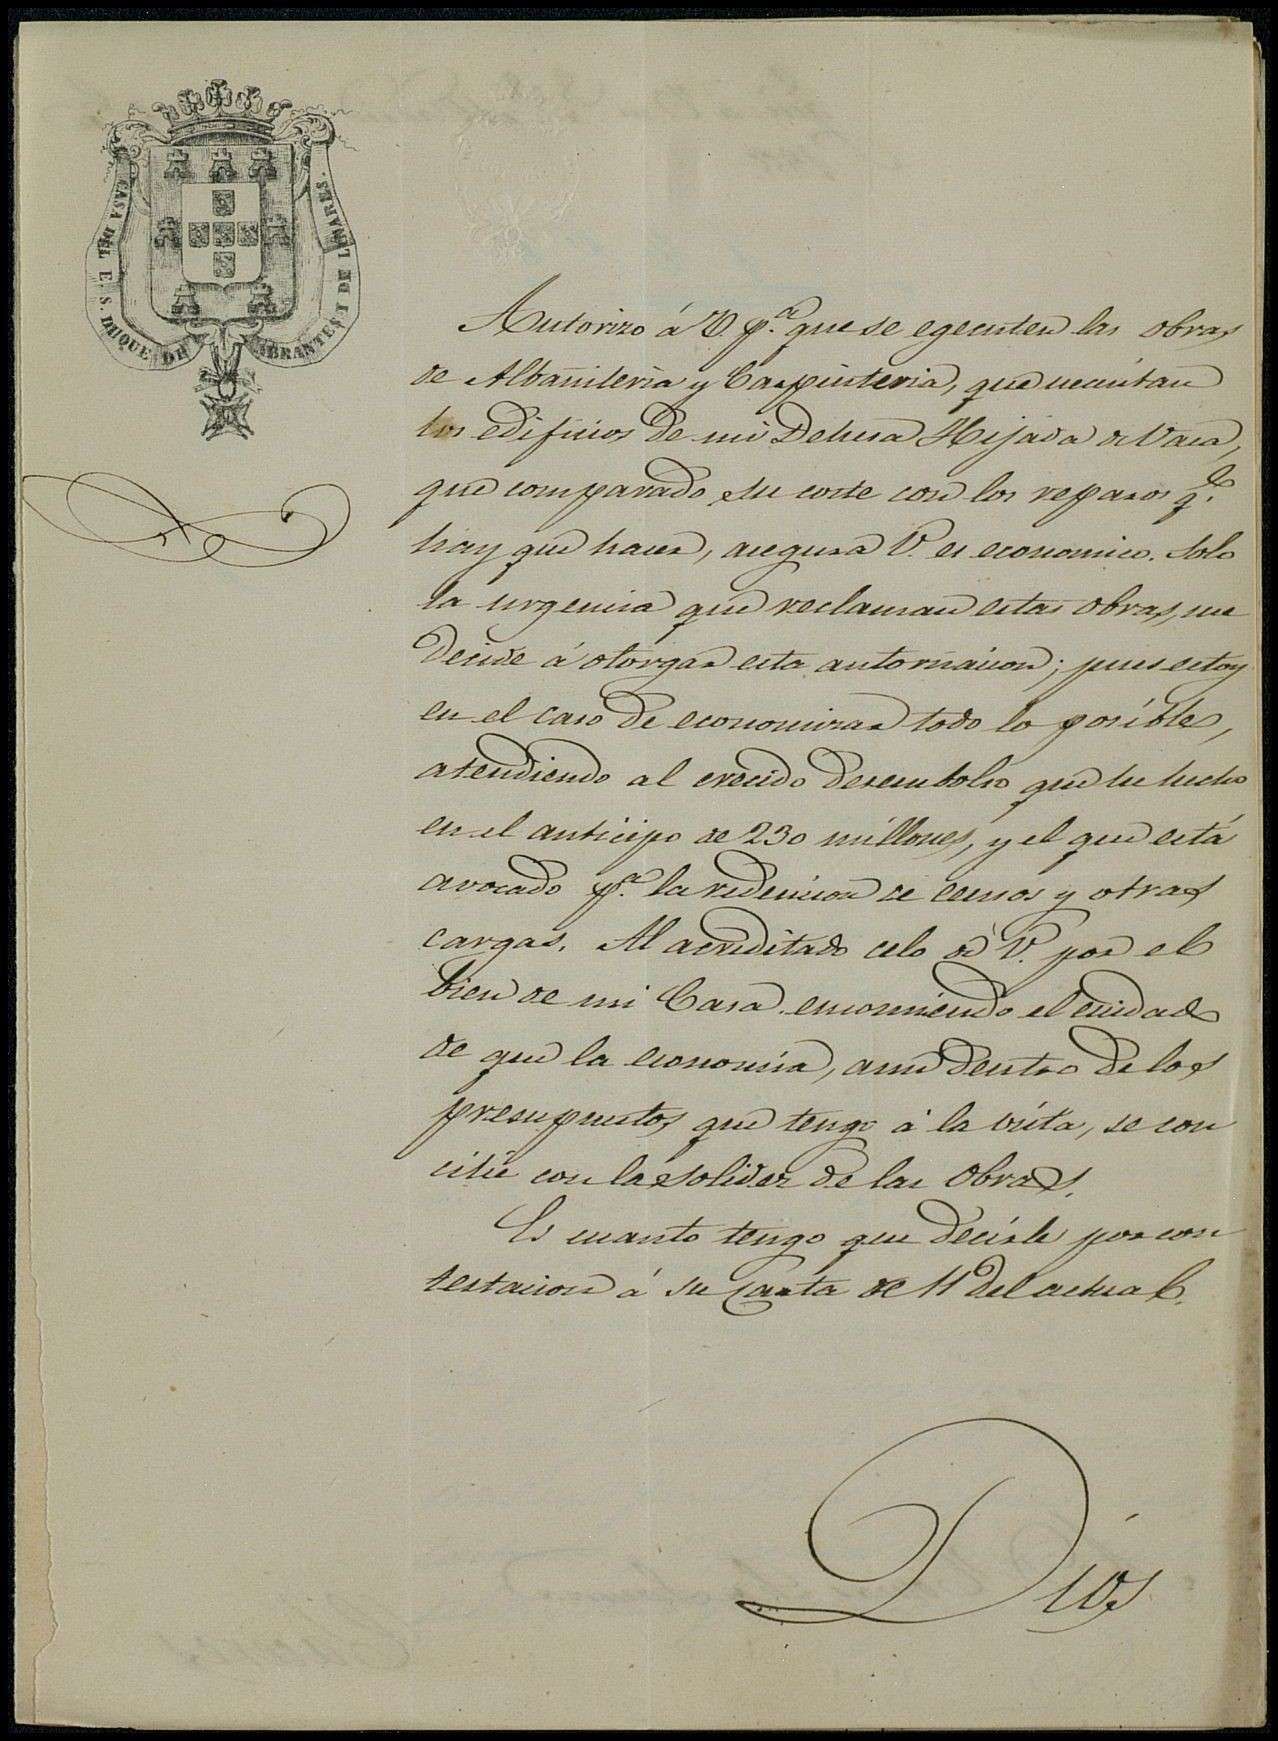 CASA DEL E. S. DUQUE DE ABRANTES Y DE LINARES.
Autorizo á V. p.ª que se egecuten las obras
de Albañileria y Carpinteria, que necesitan
los edificios de mi Dehesa Hijada de Vaca,
que comparado su coste con los reparos q.e
hay que hacer, asegura V. es economico. Solo
la urgencia que reclaman estas obras, me
decide á otorgar esta autorizacion; pues estoy
en el caso de economizar todo lo posible,
atendiendo al crecido desembolso que he hecho
en el anticipo de 230 millones, y el que está
avocado p.ª la redencion de censos y otras
cargas. Al acreditado celo de V. por el
bien de mi Casa encomiendo el cuidado
de que la economía, aun dentro de los
presupuestos que tengo á la vista, se con
cilie con la solidez de las obras.
Es cuanto tengo que decirle por con
testacion á su Carta de 11 del actual.
Dios